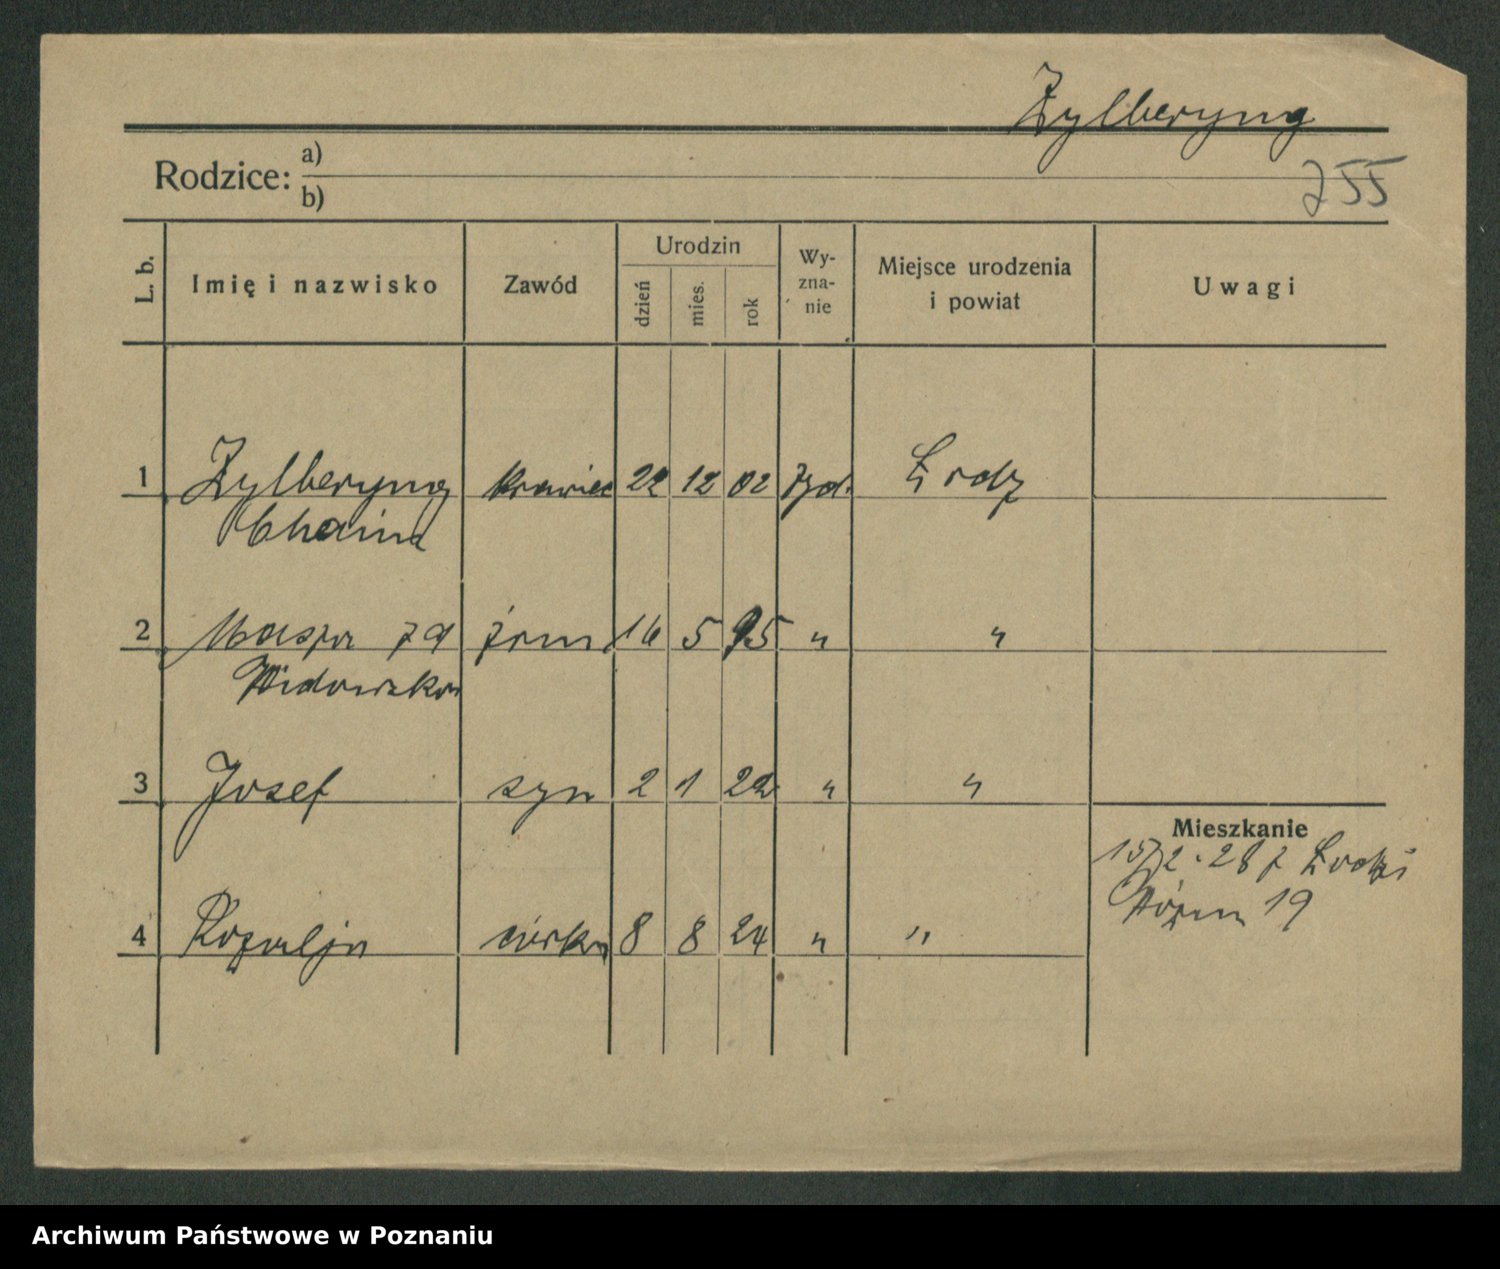 Zylberyng
255
Rodzice: a)
b)
L. b. Imię i nazwisko Zawód Urodzin dzień mies. rok Wy-zna-nie Miejsce urodzenia i powiat Uwagi
1 Zylberyng krawiec 22 12 02 żyd. Łodz
Chaim
2 żona 16 5 95 " "
3 Josef syn 2 1 22 " "
Mieszkanie
28 z Łodzi
19
4 Rozalja córka 8 8 24 " "
Archiwum Państwowe w Poznaniu